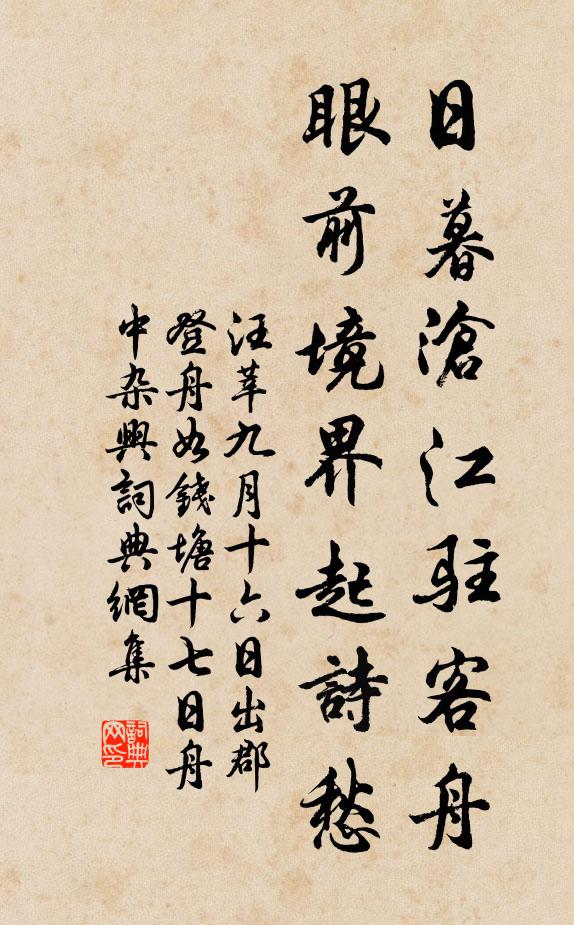 日暮滄江駐客舟
眼前境界起詩愁
汪莘九月十六日出郡
登舟如錢塘十七日舟
中杂興詞典網集
詞典網印